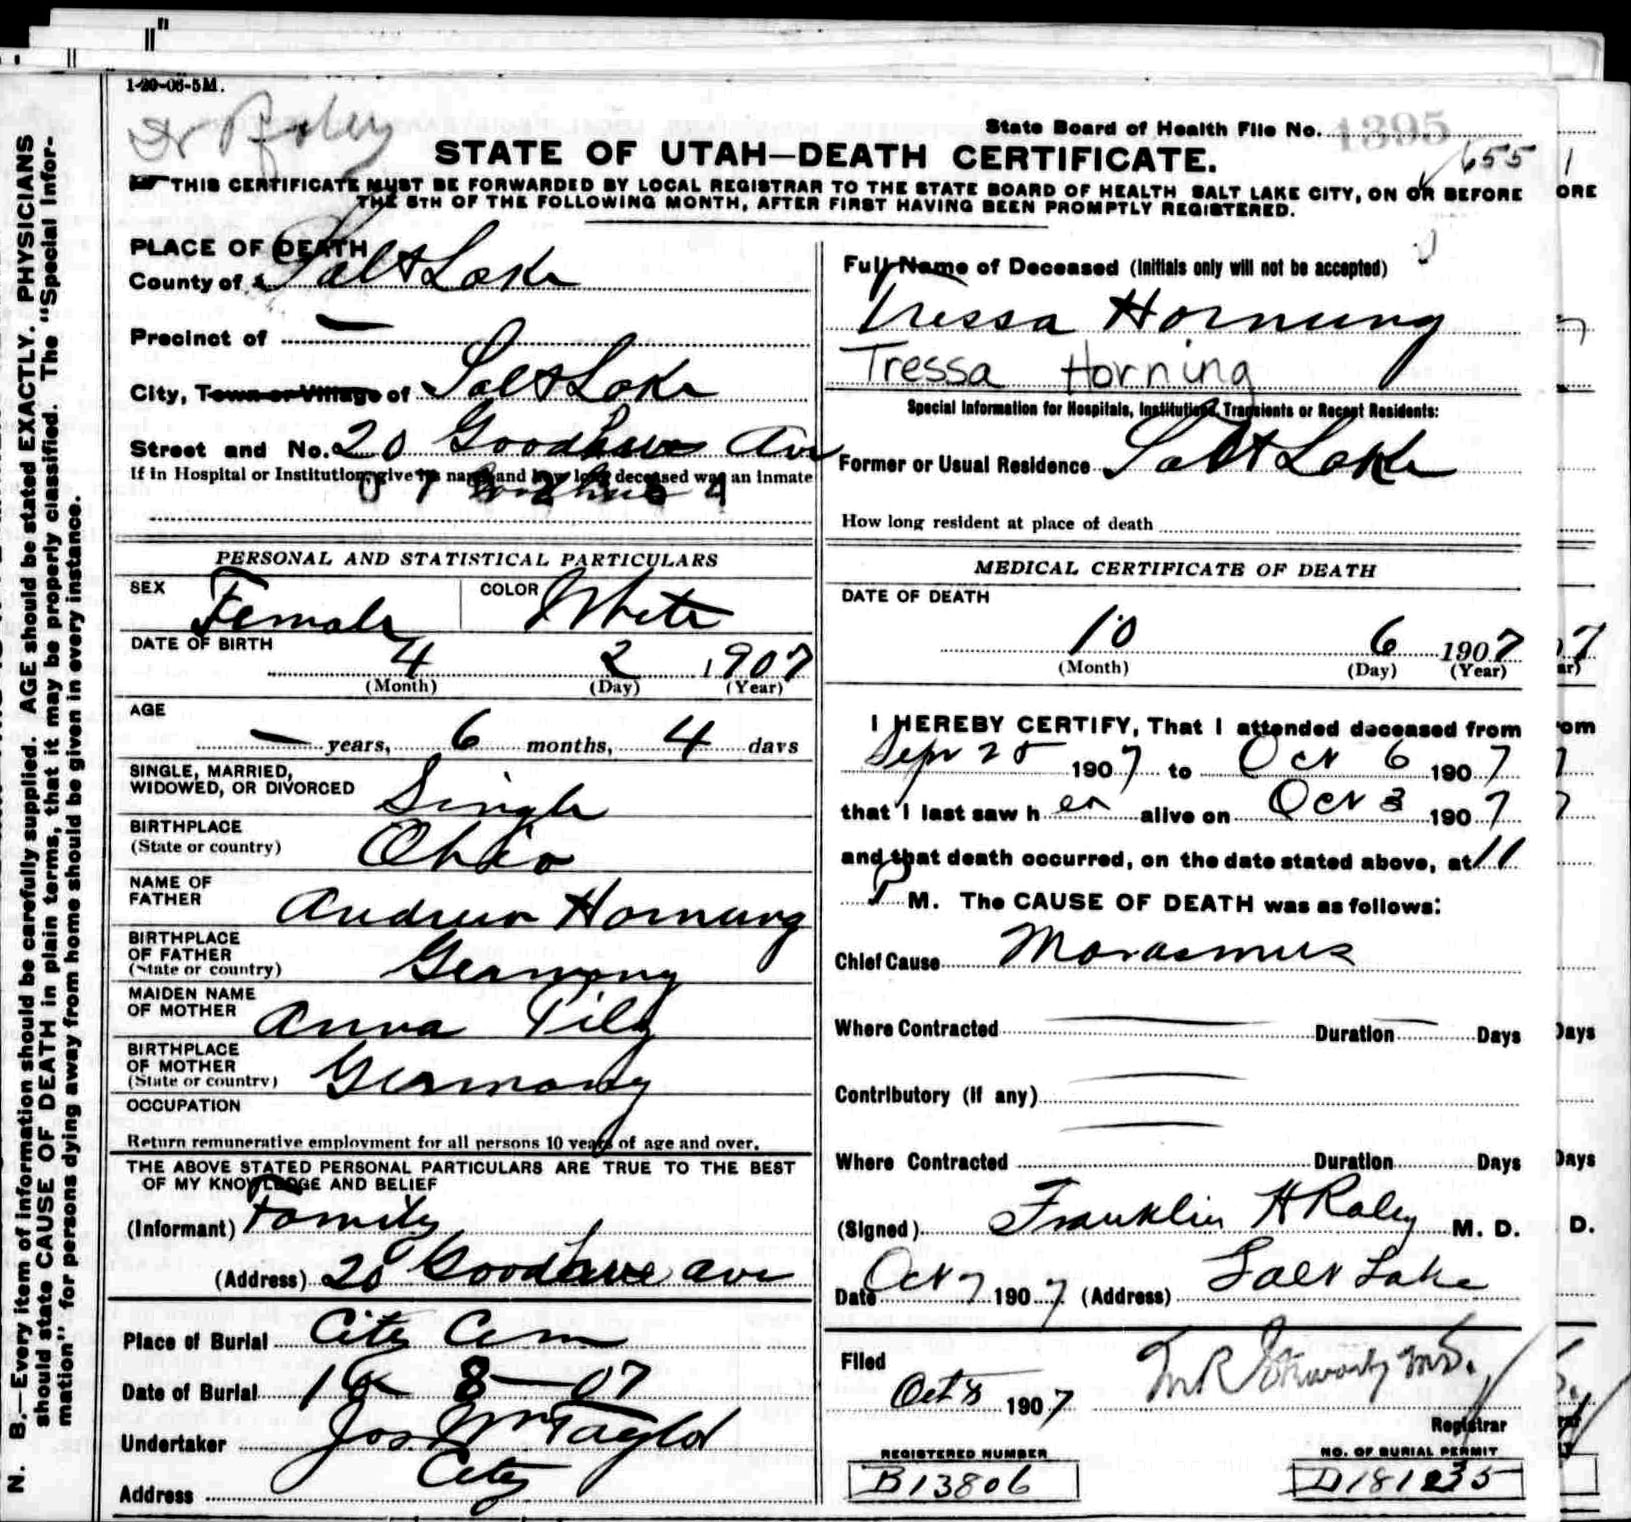 1-20-06-5M.
Dr
State Board of Health File No. 1395
655
STATE OF UTAH—DEATH CERTIFICATE.
THIS CERTIFICATE MUST BE FORWARDED BY LOCAL REGISTRAR TO THE STATE BOARD OF HEALTH SALT LAKE CITY, ON OR BEFORE
THE 5TH OF THE FOLLOWING MONTH, AFTER FIRST HAVING BEEN PROMPTLY REGISTERED.
N. B.—Every item of information should be carefully supplied. AGE should be stated EXACTLY. PHYSICIANS
should state CAUSE OF DEATH in plain terms, that it may be properly classified. The "Special Infor-
mation" for persons dying away from home should be given in every instance.
PLACE OF DEATH
County of Salt Lake
Precinct of —
City, Town or Village of Salt Lake
Street and No. 20 Av
If in Hospital or Institution, give its name and how long deceased was an inmate
PERSONAL AND STATISTICAL PARTICULARS
SEX Female COLOR White
DATE OF BIRTH
4 2 1907
(Month) (Day) (Year)
AGE
— years, 6 months, 4 days
SINGLE, MARRIED,
WIDOWED, OR DIVORCED Single
BIRTHPLACE
(State or country) Ohio
NAME OF
FATHER Andrew Hornung
BIRTHPLACE
OF FATHER
(State or country) Germany
MAIDEN NAME
OF MOTHER Anna Pily
BIRTHPLACE
OF MOTHER
(State or country) Germany
OCCUPATION
Return remunerative employment for all persons 10 years of age and over.
THE ABOVE STATED PERSONAL PARTICULARS ARE TRUE TO THE BEST
OF MY KNOWLEDGE AND BELIEF
(Informant) Family
(Address) 20 ave
Place of Burial City Cem
Date of Burial 10 8—07
Undertaker Jos Wm Taylor
City
Address
Full Name of Deceased (Initials only will not be accepted)
Tressa Hornung
Tressa Horning
Special Information for Hospitals, Institutions, Transients or Recent Residents:
Former or Usual Residence Salt Lake
How long resident at place of death
MEDICAL CERTIFICATE OF DEATH
DATE OF DEATH
10 6 1907
(Month) (Day) (Year)
I HEREBY CERTIFY, That I attended deceased from
Sept 25 1907 to Oct 6 1907
that I last saw h er alive on Oct 3 1907
and that death occurred, on the date stated above, at 11
P M. The CAUSE OF DEATH was as follows:
Chief Cause Marasmus
Where Contracted — Duration — Days
Contributory (if any) —
Where Contracted Duration Days
(Signed) Franklin H Raley M. D.
Date Oct 7 1907 (Address) Salt Lake
Filed
Oct 8 1907 M.D.
Registrar
REGISTERED NUMBER
B13806
NO. OF BURIAL PERMIT
D181235
ORE
7
ar)
om
Days
Days
D.